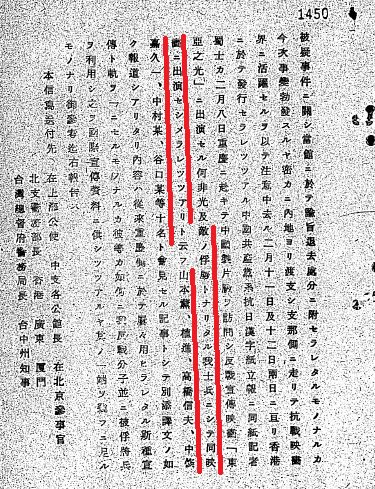 1450
被疑事件ニ關シ當館ニ於テ諭旨退去處分ニ附セラレタルモノナルカ
今次事變勃發スルヤ密カニ內地ヨリ渡支シ支那側ニ走リテ抗戰映畫
界ニ活躍セルヲ以テ注意中去ル二月十一日及十二日兩日ニ亘リ香港
ニ於テ發行セラレツツアル中國共產黨系抗日漢字紙立報ニ同紙記者
蜀士カ二月八日重慶ニ赴キテ中國製片廠ヲ訪問シ反戰宣傳映畫「東
亞之光」ニ出演セル何非光及敵ノ俘虜トナリタル我士兵ニシテ同映
畫ニ出演セシメラレツツアリト云フ山本薰、植進、高橋信夫、中
嘉久一、中村某、谷口某等十名ト會見セル記事トシテ別添譯文ノ如
ク報道シアリタリ內容ハ從來重慶側ニ於テ屢々用ヒラレタル斯種宣
傳ト軌ヲ一ニセルモノナルカ彼等カ如何ニ我反戰分子並ニ被俘將兵
ヲ利用シ之ヲ對敵宣傳資料ニ供シツツアルヤ其ノ一端ヲ窺フニ足ル
モノナリ御參考迄右報告ス
本信寫送付先 在上海公使 中支各公館長 在北京參事官
北支警務部長 香港 廣東 廈門
台灣總督府警務局長 台中州知事